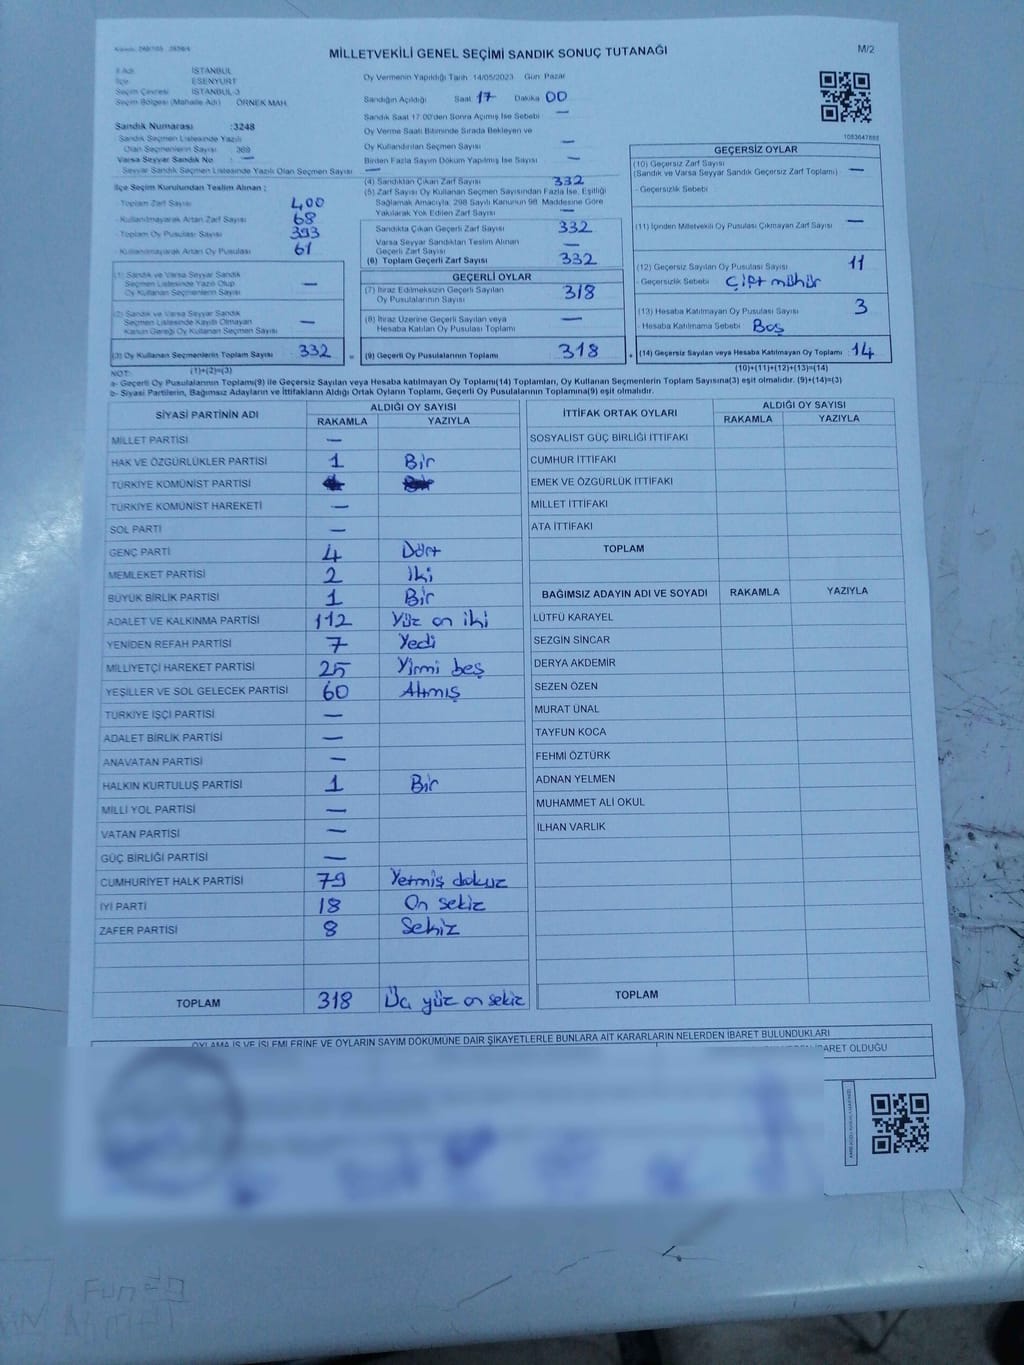 MİLLETVEKİLİ GENEL SEÇİMİ SANDIK SONUÇ TUTANAĞI
M/2
İl Adı : İSTANBUL
İlçe : ESENYURT
Seçim Çevresi : İSTANBUL-3
Seçim Bölgesi (Mahalle Adı) : ÖRNEK MAH.
Sandık Numarası :3248
Sandık Seçmen Listesinde Yazılı
Olan Seçmenlerin Sayısı : 369
Varsa Seyyar Sandık No : —
Seyyar Sandık Seçmen Listesinde Yazılı Olan Seçmen Sayısı —
İlçe Seçim Kurulundan Teslim Alınan ;
Toplam Zarf Sayısı 400
Kullanılmayarak Artan Zarf Sayısı 68
Toplam Oy Pusulası Sayısı 393
Kullanılmayarak Artan Oy Pusulası 61
(1) Sandık ve Varsa Seyyar Sandık
Seçmen Listesinde Yazılı Olup
Oy Kullanan Seçmenlerin Sayısı —
(2) Sandık ve Varsa Seyyar Sandık
Seçmen Listesinde Kayıtlı Olmayan
Kanun Gereği Oy Kullanan Seçmen Sayısı —
(3) Oy Kullanan Seçmenlerin Toplam Sayısı 332
Oy Vermenin Yapıldığı Tarih 14/05/2023 Gün: Pazar
Sandığın Açıldığı Saat 17 Dakika 00
Sandık Saat 17.00'den Sonra Açılmış İse Sebebi —
Oy Verme Saati Bitiminde Sırada Bekleyen ve
Oy Kullandırılan Seçmen Sayısı —
Birden Fazla Sayım Döküm Yapılmış İse Sayısı —
(4) Sandıktan Çıkan Zarf Sayısı 332
(5) Zarf Sayısı Oy Kullanan Seçmen Sayısından Fazla İse, Eşitliği
Sağlamak Amacıyla, 298 Sayılı Kanunun 98. Maddesine Göre
Yakılarak Yok Edilen Zarf Sayısı —
Sandıkta Çıkan Geçerli Zarf Sayısı 332
Varsa Seyyar Sandıktan Teslim Alınan
Geçerli Zarf Sayısı —
(6) Toplam Geçerli Zarf Sayısı 332
GEÇERLİ OYLAR
(7) İtiraz Edilmeksizin Geçerli Sayılan
Oy Pusulalarının Sayısı 318
(8) İtiraz Üzerine Geçerli Sayılan veya
Hesaba Katılan Oy Pusulası Toplamı —
= (9) Geçerli Oy Pusulalarının Toplamı 318
1083647888
GEÇERSİZ OYLAR
(10) Geçersiz Zarf Sayısı
(Sandık ve Varsa Seyyar Sandık Geçersiz Zarf Toplamı) —
- Geçersizlik Sebebi
(11) İçinden Milletvekili Oy Pusulası Çıkmayan Zarf Sayısı —
(12) Geçersiz Sayılan Oy Pusulası Sayısı 11
- Geçersizlik Sebebi Çift mühür
(13) Hesaba Katılmayan Oy Pusulası Sayısı 3
- Hesaba Katılmama Sebebi Boş
+ (14) Geçersiz Sayılan veya Hesaba Katılmayan Oy Toplamı 14
NOT: (1)+(2)=(3) (10)+(11)+(12)+(13)=(14)
a- Geçerli Oy Pusulalarının Toplamı(9) ile Geçersiz Sayılan veya Hesaba katılmayan Oy Toplamı(14) Toplamları, Oy Kullanan Seçmenlerin Toplam Sayısına(3) eşit olmalıdır. (9)+(14)=(3)
b- Siyasi Partilerin, Bağımsız Adayların ve İttifakların Aldığı Ortak Oyların Toplamı, Geçerli Oy Pusulalarının Toplamına(9) eşit olmalıdır.
SİYASİ PARTİNİN ADI ALDIĞI OY SAYISI
RAKAMLA YAZIYLA
MİLLET PARTİSİ —
HAK VE ÖZGÜRLÜKLER PARTİSİ 1 Bir
TÜRKİYE KOMÜNİST PARTİSİ
TÜRKİYE KOMÜNİST HAREKETİ —
SOL PARTİ —
GENÇ PARTİ 4 Dört
MEMLEKET PARTİSİ 2 İki
BÜYÜK BİRLİK PARTİSİ 1 Bir
ADALET VE KALKINMA PARTİSİ 112 Yüz on iki
YENİDEN REFAH PARTİSİ 7 Yedi
MİLLİYETÇİ HAREKET PARTİSİ 25 Yirmi beş
YEŞİLLER VE SOL GELECEK PARTİSİ 60 Atmış
TÜRKİYE İŞÇİ PARTİSİ —
ADALET BİRLİK PARTİSİ —
ANAVATAN PARTİSİ —
HALKIN KURTULUŞ PARTİSİ 1 Bir
MİLLİ YOL PARTİSİ —
VATAN PARTİSİ —
GÜÇ BİRLİĞİ PARTİSİ —
CUMHURİYET HALK PARTİSİ 79 Yetmiş dokuz
İYİ PARTİ 18 On sekiz
ZAFER PARTİSİ 8 Sekiz
TOPLAM 318 Üç yüz on sekiz
İTTİFAK ORTAK OYLARI ALDIĞI OY SAYISI
RAKAMLA YAZIYLA
SOSYALİST GÜÇ BİRLİĞİ İTTİFAKI
CUMHUR İTTİFAKI
EMEK VE ÖZGÜRLÜK İTTİFAKI
MİLLET İTTİFAKI
ATA İTTİFAKI
TOPLAM
BAĞIMSIZ ADAYIN ADI VE SOYADI RAKAMLA YAZIYLA
LÜTFÜ KARAYEL
SEZGİN SİNCAR
DERYA AKDEMİR
SEZEN ÖZEN
MURAT ÜNAL
TAYFUN KOCA
FEHMİ ÖZTÜRK
ADNAN YELMEN
MUHAMMET ALİ OKUL
İLHAN VARLIK
TOPLAM
OYLAMA İŞ VE İŞLEMLERİNE VE OYLARIN SAYIM DÖKÜMÜNE DAİR ŞİKAYETLERLE BUNLARA AİT KARARLARIN NELERDEN İBARET BULUNDUKLARI
İBARET OLDUĞU